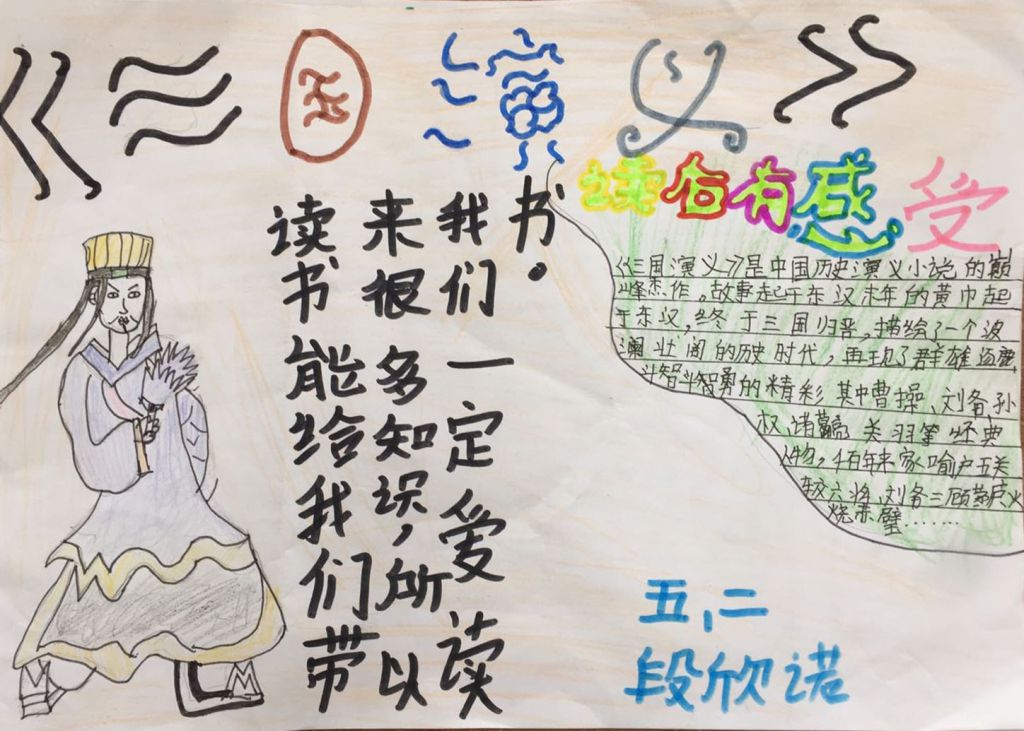 《三国演义》
读后有感受
读书能给我们带
来很多知识,所以
我们一定爱读
书。
《三国演义》是中国历史演义小说的巅
峰杰作。故事起于东汉末年的黄巾起
于东汉,终于三国归晋,描绘了一个波
澜壮阔的历史时代,再现了群雄逐鹿
斗智斗智勇的精彩其中曹操、刘备、孙
权、诸葛亮、关羽等经典
人物,千百年来家喻户五关
六将、刘备三顾茅庐火
烧赤壁……
五,二
段欣诺